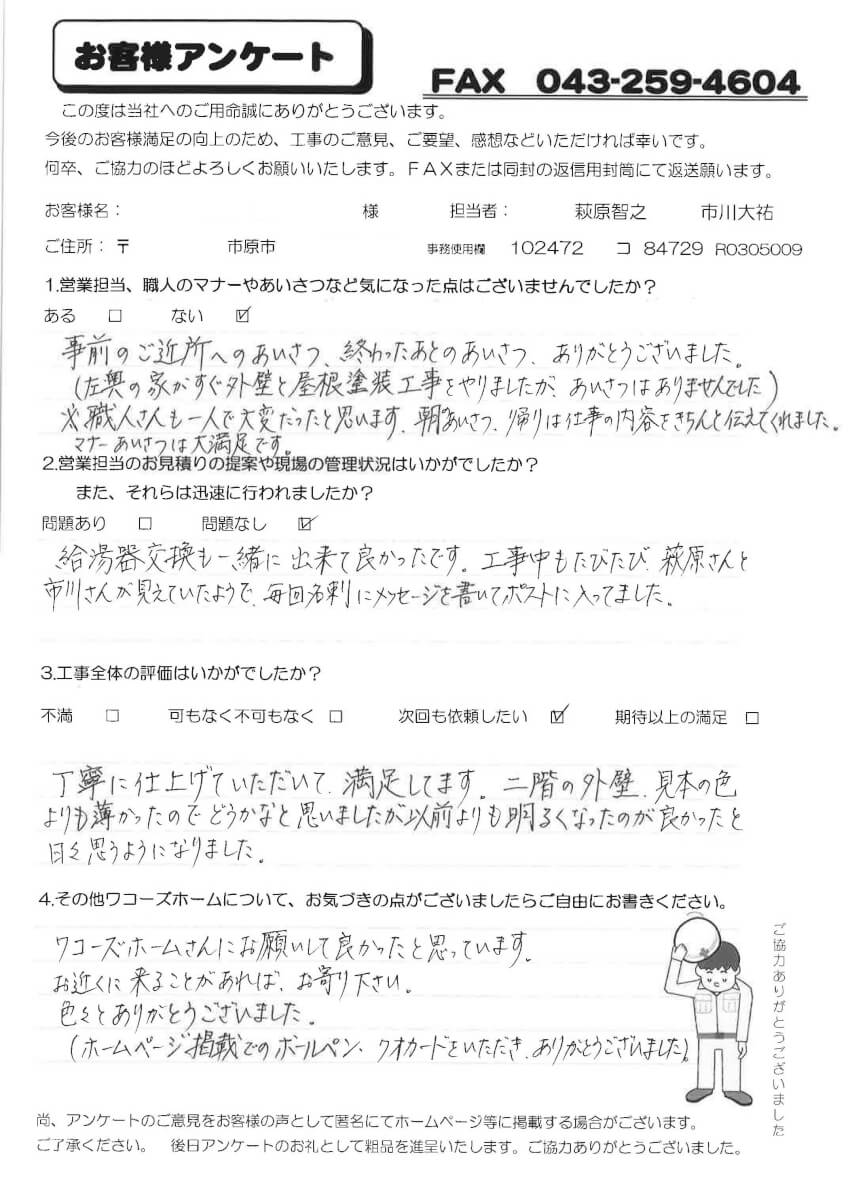 お客様アンケート
FAX 043-259-4604
この度は当社へのご用命誠にありがとうございます。
今後のお客様満足の向上のため、工事のご意見、ご要望、感想などいただければ幸いです。
何卒、ご協力のほどよろしくお願いいたします。FAXまたは同封の返信用封筒にて返送願います。
お客様名： 様 担当者： 萩原智之 市川大祐
ご住所：〒 市原市 事務使用欄 102472 コ 84729 R0305009
1.営業担当、職人のマナーやあいさつなど気になった点はございませんでしたか？
ある □ ない ☑
事前のご近所へのあいさつ、終わったあとのあいさつ、ありがとうございました。
(左奥の家がすぐ外壁と屋根塗装工事をやりましたが、あいさつはありませんでした)
※職人さんも一人で大変だったと思います、朝あいさつ、帰りは仕事の内容をきちんと伝えてくれました。
マナーあいさつは大満足です。
2.営業担当のお見積りの提案や現場の管理状況はいかがでしたか？
また、それらは迅速に行われましたか？
問題あり □ 問題なし ☑
給湯器交換も一緒に出来て良かったです。工事中もたびたび、萩原さんと
市川さんが見えていたようで、毎回名刺にメッセージを書いてポストに入ってました。
3.工事全体の評価はいかがでしたか？
不満 □ 可もなく不可もなく □ 次回も依頼したい ☑ 期待以上の満足 □
丁寧に仕上げていただいて、満足してます。二階の外壁、見本の色
よりも薄かったのでどうかなと思いましたが以前よりも明るくなったのが良かったと
日々思うようになりました。
4.その他ワコーズホームについて、お気づきの点がございましたらご自由にお書きください。
ワコーズホームさんにお願いして良かったと思っています。
お近くに来ることがあれば、お寄り下さい。
色々とありがとうございました。
(ホームページ掲載でのボールペン、クオカードをいただき、ありがとうございました)
ご協力ありがとうございました
尚、アンケートのご意見をお客様の声として匿名にてホームページ等に掲載する場合がございます。
ご了承ください。 後日アンケートのお礼として粗品を進呈いたします。ご協力ありがとうございました。